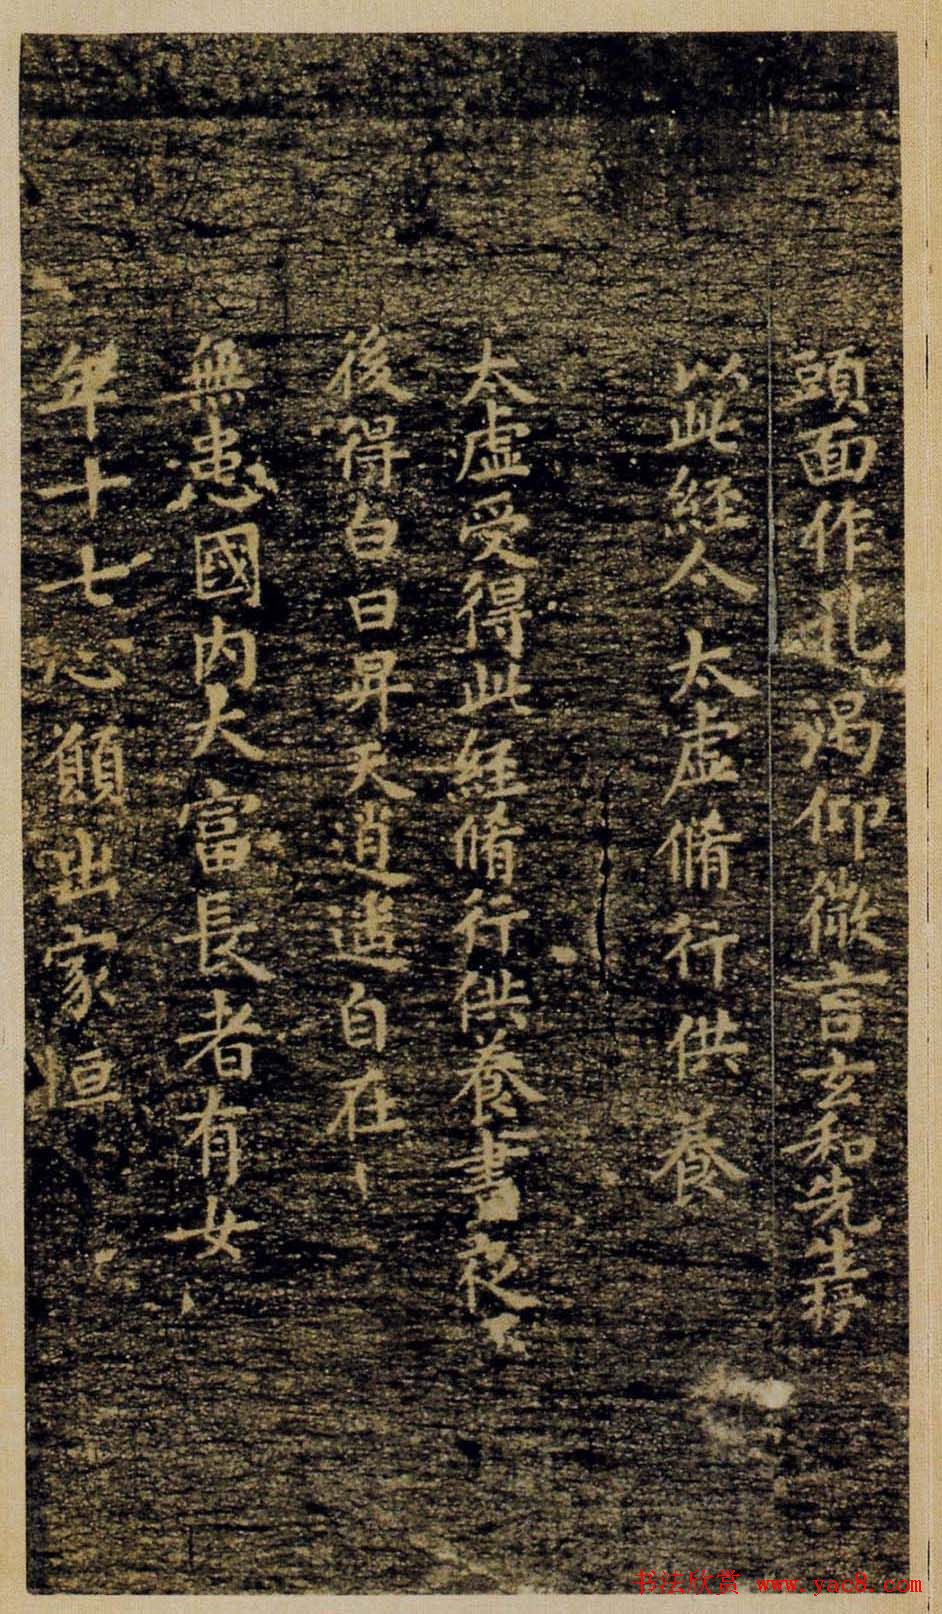 頭面作礼渴仰微言玄和先生將
以此經令太虛脩行供養
太虛受得此經脩行供養晝夜不
後得白日昇天逍遥自在
無患國内大富長者有女
年十七心願出家恒
书法欣赏 www.yac8.com